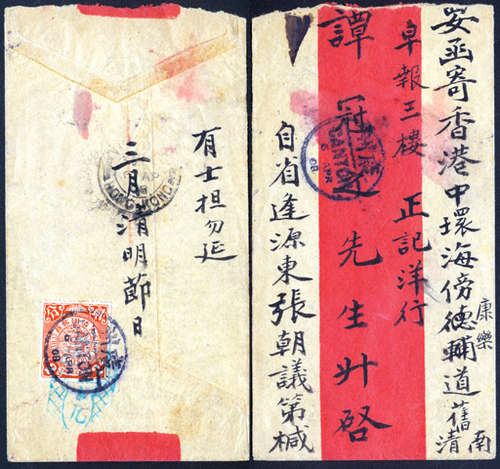 妥函寄香港中環海傍德輔道舊清南
康樂
阜報三樓 正記洋行
譚冠之先生升啓
自省逢源東張朝議第椷
有士担勿延
三月清明節日
HONG KONG
CANTON
CANTON